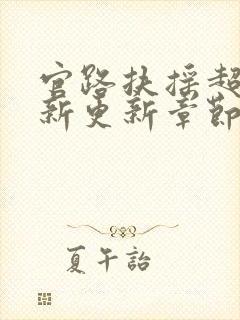 官路扶摇超
新更新章节
夏午詒